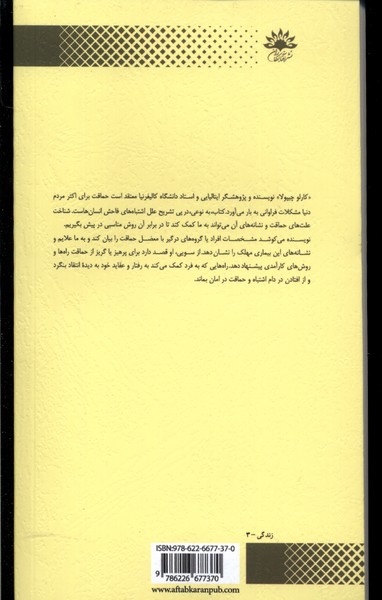 «کارلو چیپولا» نویسنده و پژوهشگر ایتالیایی و استاد دانشگاه کالیفرنیا معتقد است حماقت برای اکثر مردم
دنیا مشکلات فراوانی به بار می‌آورد. کتاب، به نوعی، در پی تشریح علل اشتباه‌های فاحش انسان‌هاست. شناخت
علت‌های حماقت و نشانه‌های آن می‌تواند به ما کمک کند تا در برابر آن روش مناسبی در پیش بگیریم.
نویسنده می‌کوشد مشخصات افراد یا گروه‌های درگیر با معضل حماقت را بیان کند و به ما علایم و
نشانه‌های این بیماری مهلک را نشان دهد. از سویی، او قصد دارد برای پرهیز یا گریز از حماقت راه‌ها و
روش‌های کارآمدی پیشنهاد دهد. راه‌هایی که به فرد کمک می‌کند به رفتار و عقاید خود به دیدهٔ انتقاد بنگرد
و از افتادن در دام اشتباه و حماقت در امان بماند.
زندگی - ۳
ISBN:978-622-6677-37-0
9 786226 677370
www.aftabkaranpub.com